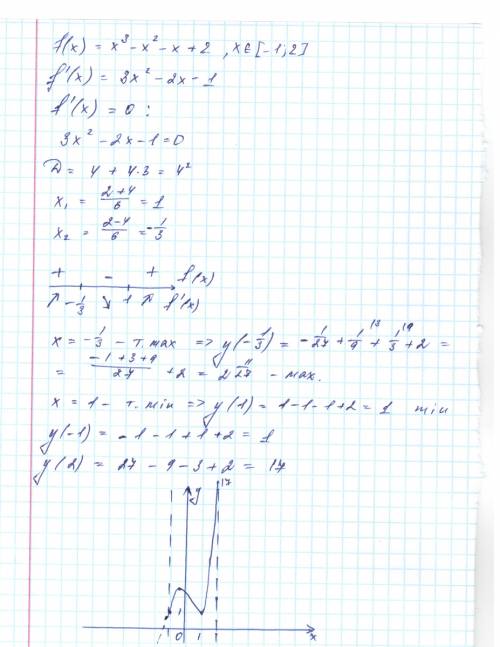 f(x) = x³ - x² - x + 2 , x ∈ [-1; 2]
f'(x) = 3x² - 2x - 1
f'(x) = 0 :
3x² - 2x - 1 = 0
D = 4 + 4·3 = 4²
x₁ = (2+4)/6 = 1
x₂ = (2-4)/6 = -1/3
+ - + f(x)
↗ -1/3 ↘ 1 ↗ f'(x)
x = -1/3 - т. max => y(-1/3) = -1/27 + 1/9 \3 + 1/3 \9 + 2 =
= (-1+3+9)/27 + 2 = 2 11/27 - max.
x = 1 - т. min => y(1) = 1-1-1+2 = 1 min
y(-1) = -1-1+1+2 = 1
y(2) = 27 - 9 - 3 + 2 = 17
y 17
1
1 0 1 x